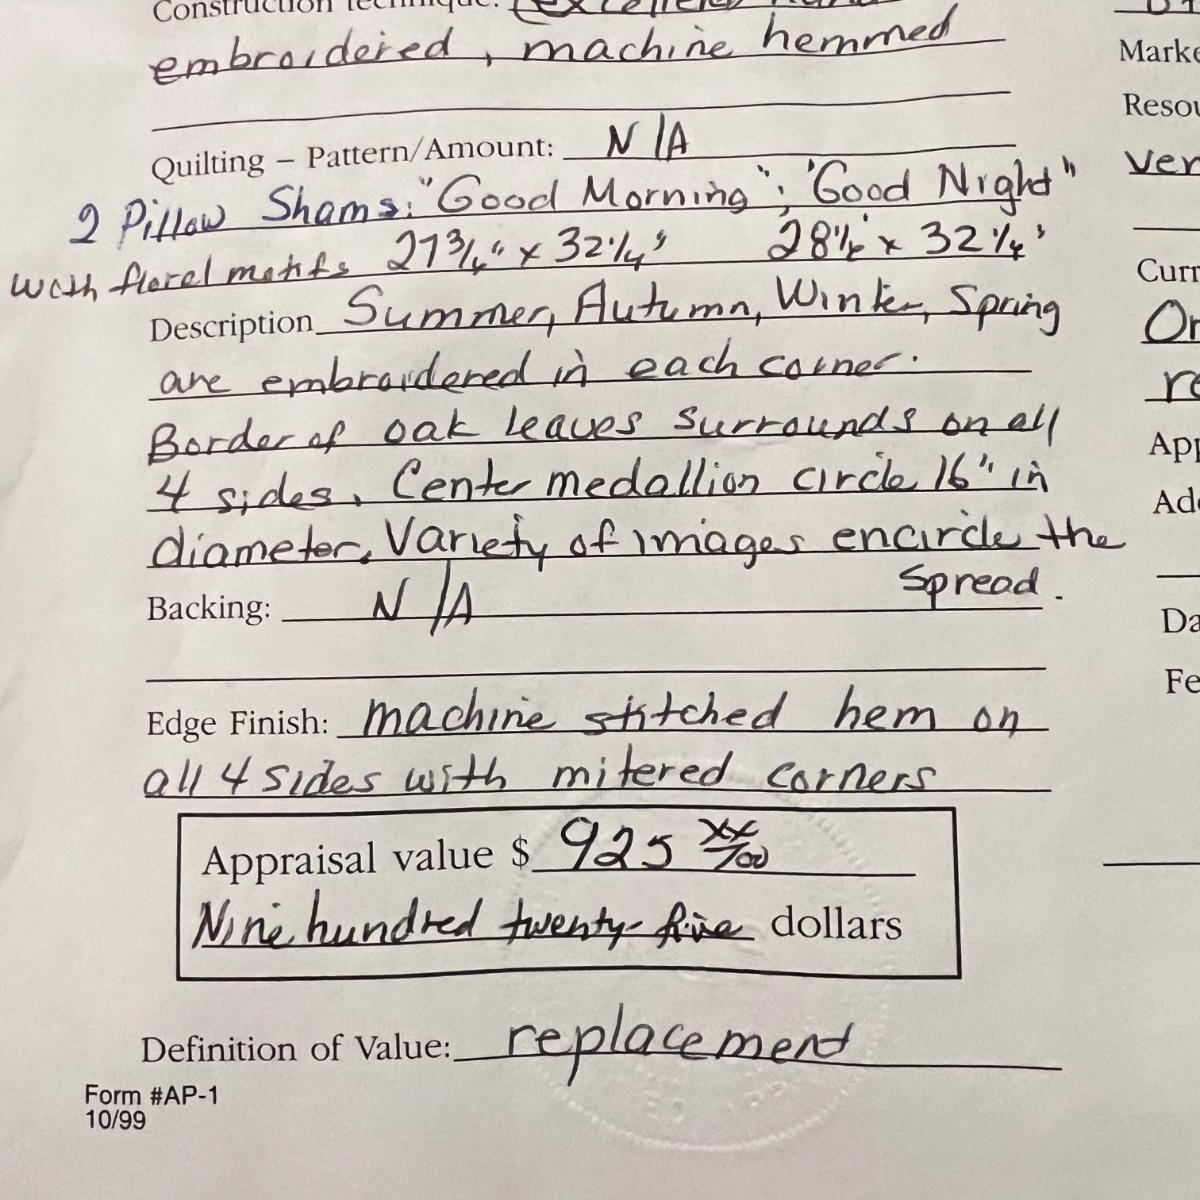 Construction technique: (excellent hand
embroidered, machine hemmed
Quilting – Pattern/Amount: N/A
2 Pillow Shams: "Good Morning"; 'Good Night"
with floral motifs 27 3/4" x 32 1/4" 28 1/2" x 32 1/4"
Description Summer, Autumn, Winter, Spring
are embroidered in each corner.
Border of oak leaves surrounds on all
4 sides. Center medallion circle 16" in
diameter. Variety of images encircle the
spread.
Backing: N/A
Edge Finish: machine stitched hem on
all 4 sides with mitered corners
Appraisal value $ 925 xx/00
Nine hundred twenty-five dollars
Definition of Value: replacement
Form #AP-1
10/99
Marke
Resou
ver
Curr
Or
re
App
Add
Da
Fe